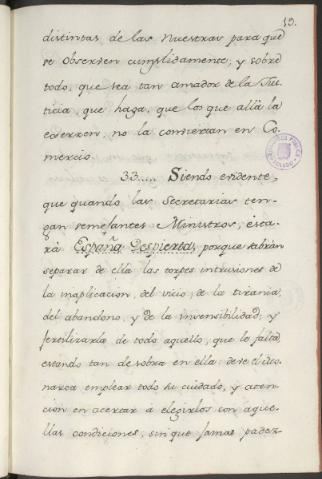 19.
distintas de las Nuestras para que
se observen cumplidamente, y sobre
todo, que sea tan amador de la Jus
ticia, que haga, que los que allà la
exerzen, no la conviertan en Co-
mercio
33.... Siendo evidente,
que quando las Secretarias ten-
gan semejantes Ministros, esta-
rà España Despierta, porque sabrán
separar de ella las torpes intrusiones de
la inaplicacion, del vicio, de la tirania,
del abandono, y de la insensibilidad, y
fertilizarla de todo aquello, que le falta,
estando tan de sobra en ella: deve el Mo-
narca emplear todo su cuidado, y aten
cion en acertar a elegirlos con aque-
llas condiciones, sin que jamas padez-